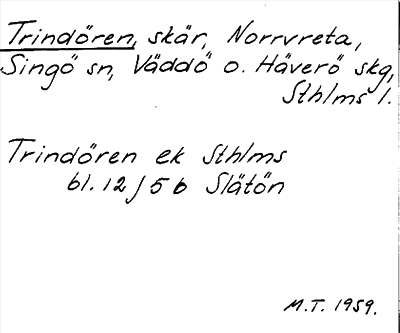 Trindören, skär, Norrvreta,
Singö sn, Väddö o. Häverö skg,
Sthlms l.
Trindören ek Sthlms
bl. 12 J 5 b Slätön
M.T. 1959.